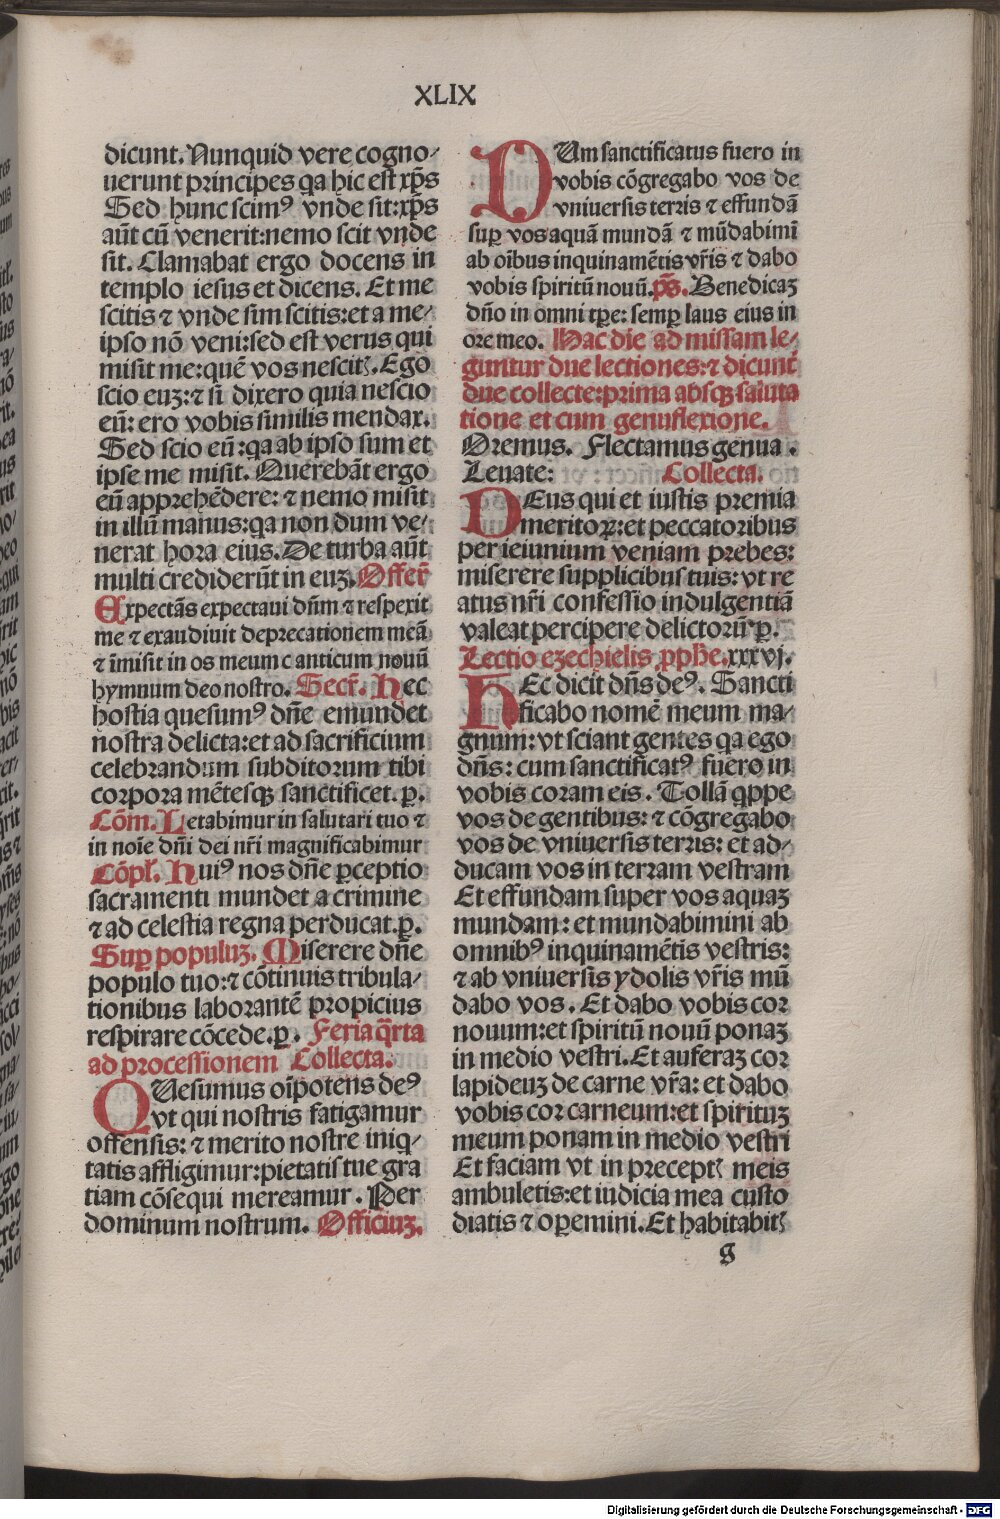 XLIX
dicunt. Nunquid vere cogno/
uerunt principes qa hic est xp̄s
Sed hunc scimꝰ vnde sit: xp̄s
aūt cū venerit: nemo scit vnde
sit. Clamabat ergo docens in
templo iesus et dicens. Et me
scitis ⁊ vnde sim scitis: et a me/
ipso nō veni: sed est verus qui
misit me: quē vos nescitꝭ. Ego
scio euꝫ: ⁊ si dixero quia nescio
eū: ero vobis similis mendax.
Sed scio eū: qa ab ipso sum et
ipse me misit. Querebāt ergo
eū apprehēdere: ⁊ nemo misit
in illū manus: qa non dum ve/
nerat hora eius. De turba aūt
multi crediderūt in euꝫ. Offer̄
Expectās expectaui dn̄m ⁊ respexit
me ⁊ exaudiuit deprecationem meā
⁊ īmisit in os meum c anticum nouū
hymnum deo nostro. Secr̄. Hec
hostia quesumꝰ dn̄e emundet
nostra delicta: et ad sacrificium
celebrandum subditorum tibi
corpora mētesqꝫ sanctificet. p.
Cōm. Letabimur in salutari tuo ⁊
in noīe dn̄i dei nr̄i magnificabimur
Cōpl̄. Huiꝰ nos dn̄e ꝑceptio
sacramenti mundet a crimine
⁊ ad celestia regna perducat. p.
Suꝑ populuꝫ. Miserere dn̄e
populo tuo: ⁊ cōtinuis tribula/
tionibus laborantē propicius
respirare cōcede. p. Feria q̄rta
ad processionem Collecta.
QVesumus oīpotens deꝰ
vt qui nostris fatigamur
offensis: ⁊ merito nostre iniq/
tatis affligimur: pietatis tue gra
tiam cōsequi mereamur. Per
dominum nostrum. Officiuꝫ.
DUm sanctificatus fuero in
vobis cōgregabo vos de
vniuersis terris ⁊ effundā
suꝑ vos aquā mundā ⁊ mūdabimī
ab oībus inquinamētis vr̄is ⁊ dabo
vobis spiritū nouū. ps̄. Benedicaꝫ
dn̄o in omni tꝑe: semꝑ laus eius in
ore meo. Hac die ad missam le/
guntur due lectiones: ⁊ dicunt̄
due collecte: prima absqꝫ saluta
tione et cum genuflexione.
Oremus. Flectamus genua.
Leuate: Collecta.
DEus qui et iustis premia
meritoꝝ: et peccatoribus
per ieiunium veniam prebes:
miserere supplicibus tuis: vt re
atus nr̄i confessio indulgentiā
valeat percipere delictorū p.
Lectio ezechielis ꝓph̄e. xxxvj.
HEc dicit dn̄s deꝰ. Sancti
ficabo nomē meum ma/
gnum: vt sciant gentes qa ego
dn̄s: cum sanctificatꝰ fuero in
vobis coram eis. Tollā qppe
vos de gentibus: ⁊ cōgregabo
vos de vniuersis terris: et ad/
ducam vos in terram vestram
Et effundam super vos aquaꝫ
mundam: et mundabimini ab
omnibꝰ inquinamētis vestris:
⁊ ab vniuersis ydolis vr̄is mū
dabo vos. Et dabo vobis cor
nouum: et spiritū nouū ponaꝫ
in medio vestri. Et auferaꝫ cor
lapideuꝫ de carne vr̄a: et dabo
vobis cor carneum: et spirituꝫ
meum ponam in medio vestri
Et faciam vt in preceptꝭ meis
ambuletis: et iudicia mea custo
diatis ⁊ oꝑemini. Et habitabitꝭ
g
Digitalisierung gefördert durch die Deutsche Forschungsgemeinschaft - DFG